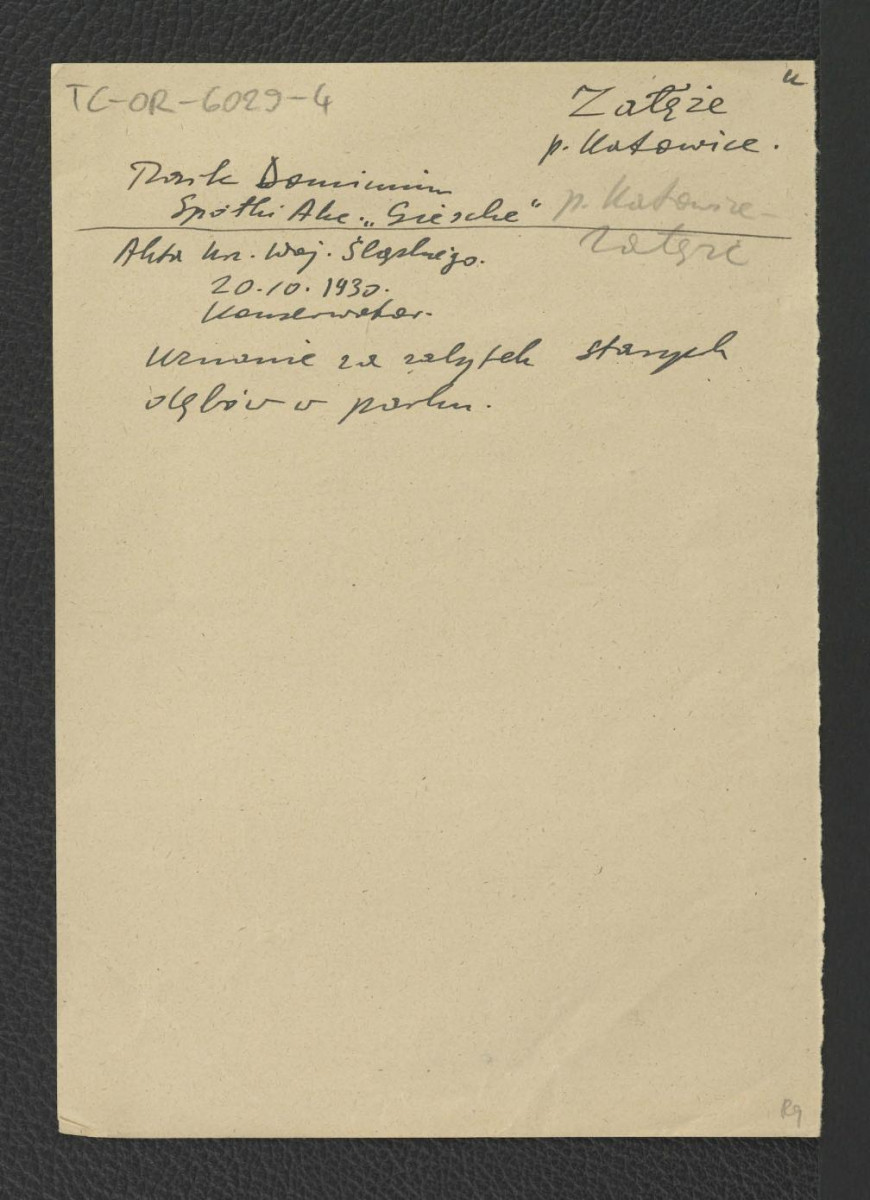 TC-OR-6029-4
Załęże
p. Katowice.
Park Dominium
Spółki Akc. „Giesche"
p. Katowice-
Załęże
Akta Urz. Woj. Śląskiego.
20.10.1930.
Konserwator.
Uznanie za zabytek starych
dębów w parku.